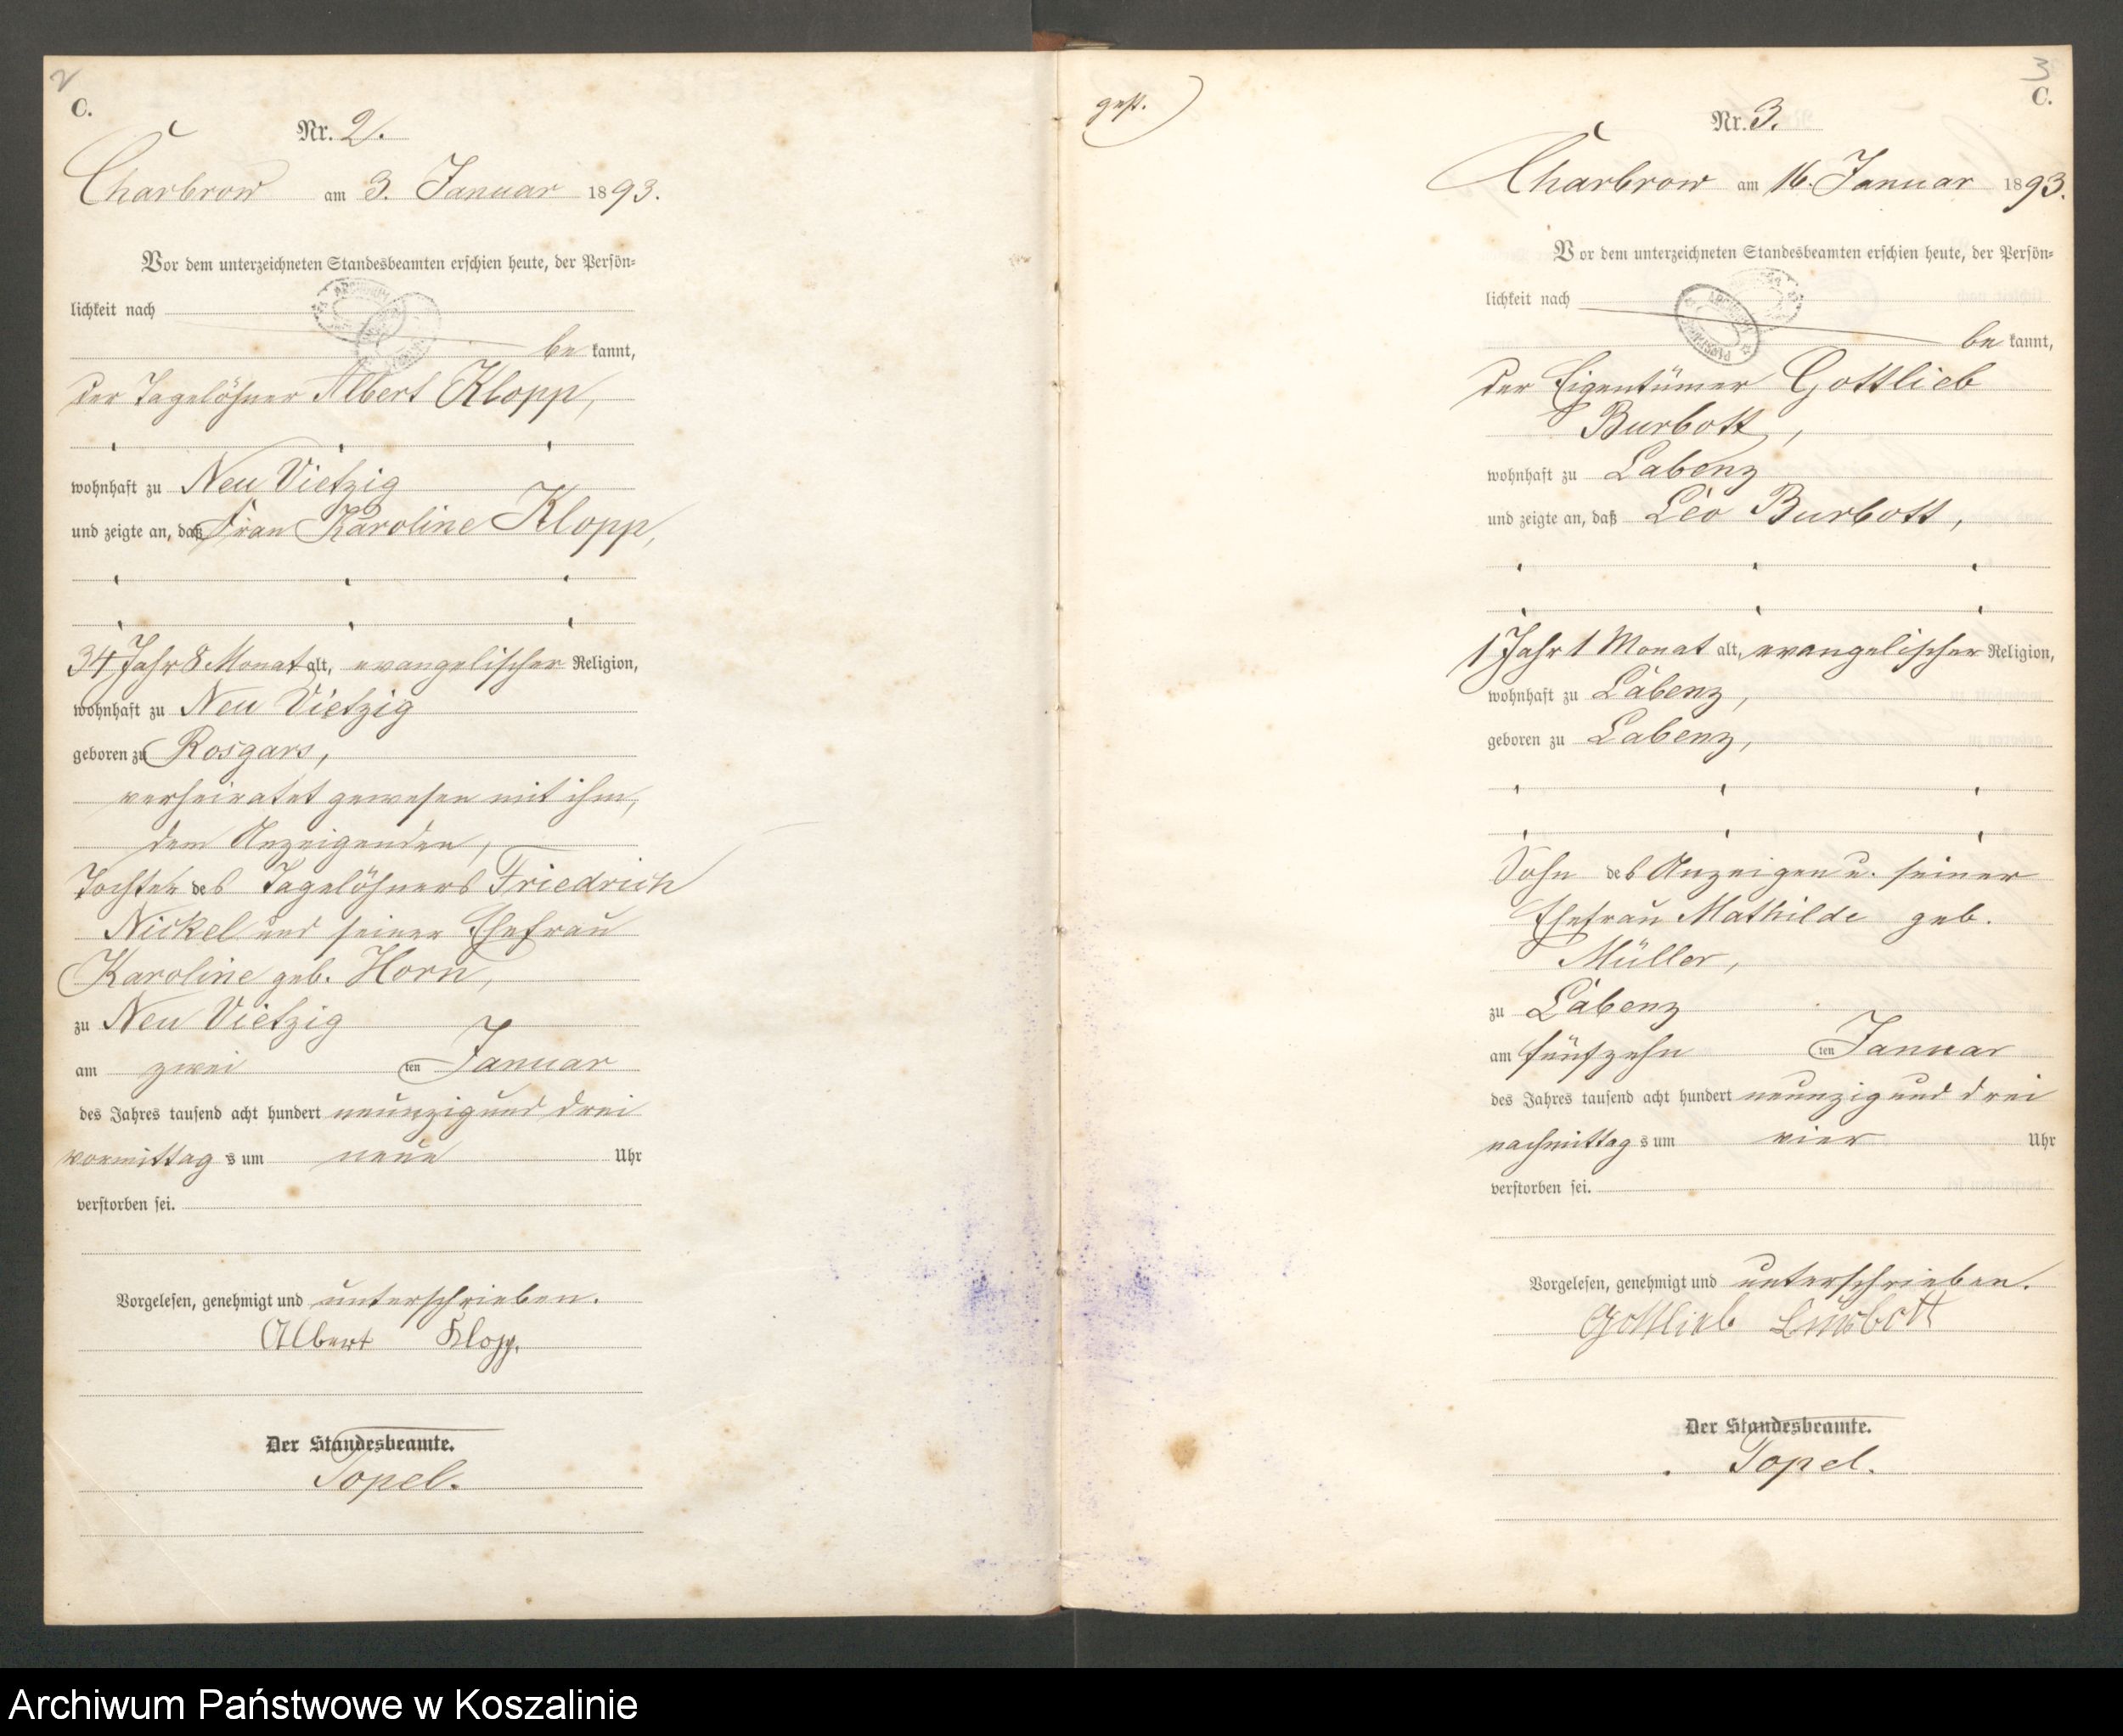 2
C.
Nr. 2.
Charbrow am 3. Januar 1893.
Vor dem unterzeichneten Standesbeamten erschien heute, der Persön-
lichkeit nach
be kannt,
der Tagelöhner Albert Klopp,
wohnhaft zu Neu Vietzig
und zeigte an, daß Frau Karoline Klopp,
34 Jahr 8 Monat alt, evangelischer Religion,
wohnhaft zu Neu Vietzig
geboren zu Rosgars,
verheiratet gewesen mit ihm,
dem Anzeigenden,
Tochter des Tagelöhners Friedrich
Nickel und seiner Ehefrau
Karoline geb. Horn,
zu Neu Vietzig
am zwei ten Januar
des Jahres tausend acht hundert neunzig und drei
vormittag s um neun Uhr
verstorben sei.
Vorgelesen, genehmigt und unterschrieben.
Albert Klopp.
Der Standesbeamte.
Topel.
gest.
3
C.
Nr. 3.
Charbrow am 16. Januar 1893.
Vor dem unterzeichneten Standesbeamten erschien heute, der Persön-
lichkeit nach
be kannt,
der Eigentümer Gottlieb
Burbott,
wohnhaft zu Labenz
und zeigte an, daß Leo Burbott,
1 Jahr 1 Monat alt, evangelischer Religion,
wohnhaft zu Labenz,
geboren zu Labenz,
Sohn des Anzeigen u. seiner
Ehefrau Mathilde geb.
Müller,
zu Labenz
am fünfzehn ten Januar
des Jahres tausend acht hundert neunzig und drei
nachmittag s um vier Uhr
verstorben sei.
Vorgelesen, genehmigt und unterschrieben.
Gottlieb Burbott
Der Standesbeamte.
Topel.
Archiwum Państwowe w Koszalinie